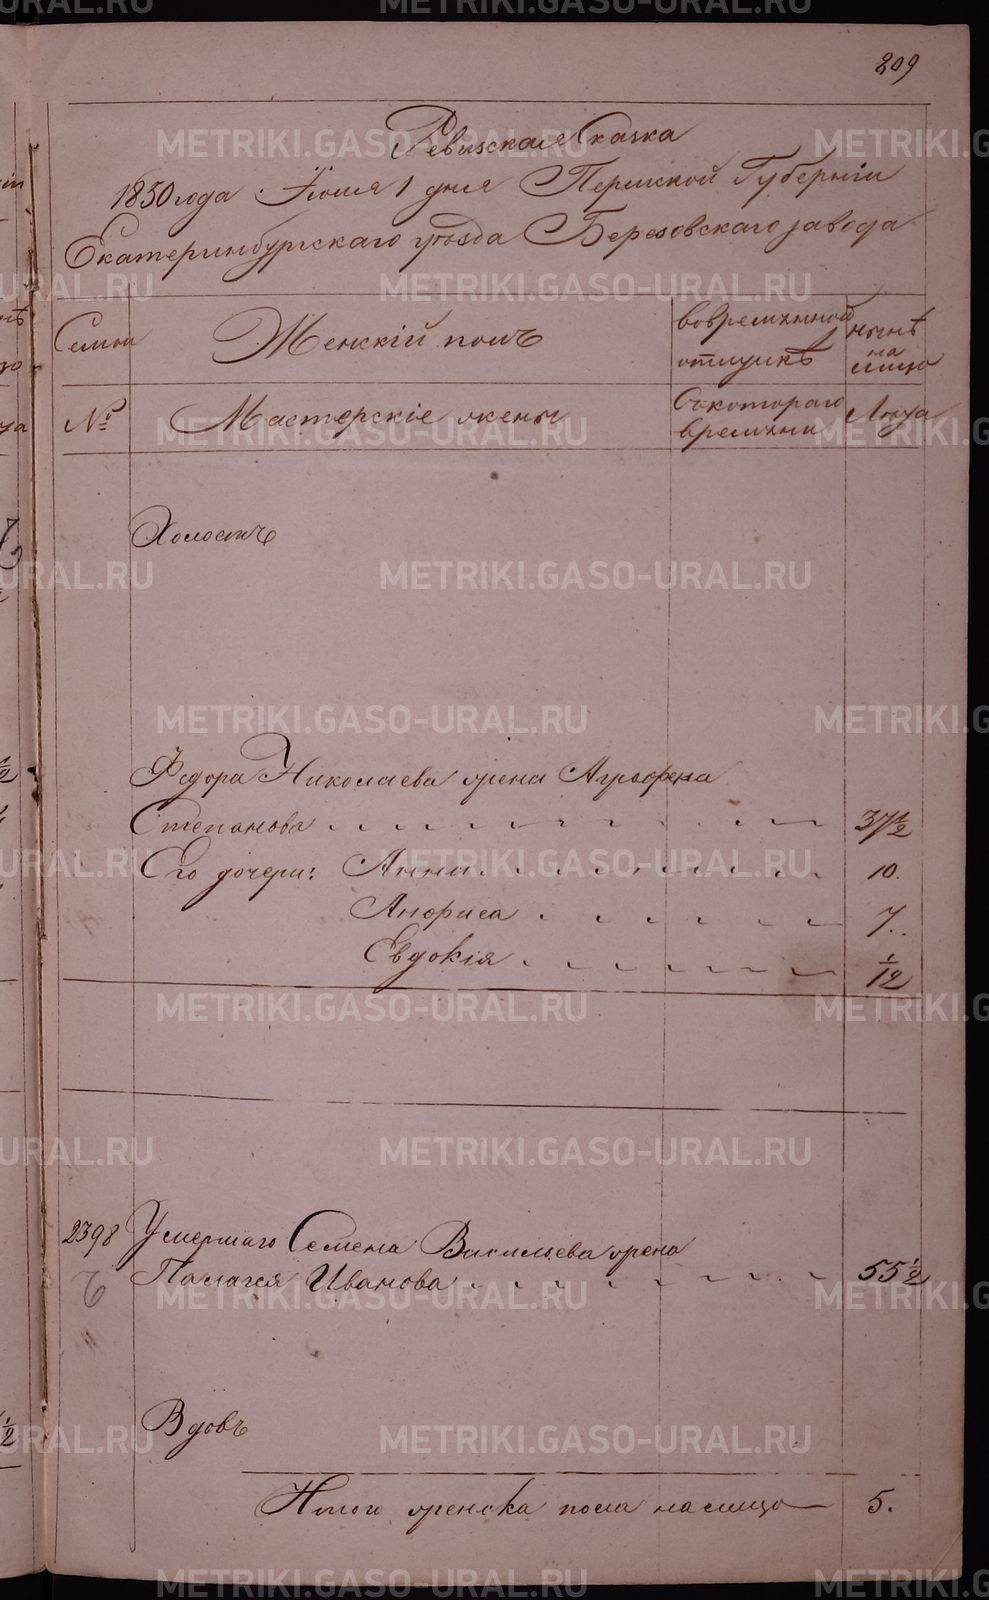 209
Ревизская Сказка
1850 года Июля 1 дня Пермской Губерніи
Екатеринбургскаго уѣзда Березовскаго завода
Семьи
Женскій полъ
вовременной отлучкѣ
нынѣ на лицо
№
Мастерскіе жены
Съкотораго времени
Лѣта
Холостъ
Федора Николаева жена Аграфена
Степанова 37½
Его дочери: Анна 10.
Анфиса 7.
Евдокія 1/12
2398 Умершаго Семена Васильева жена
Палагея Иванова 55½
Вдовъ
Итого женска пола налицо 5.
METRIKI.GASO-URAL.RU